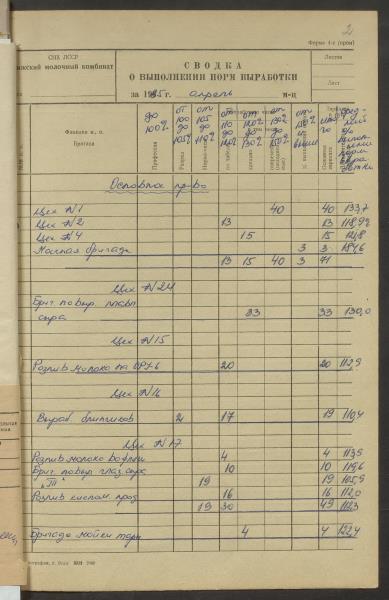 2
Форма 4-т (пром)
СНХ ЛССР
ижский молочный комбинат
СВОДКА
О ВЫПОЛНЕНИИ НОРМ ВЫРАБОТКИ
за 1965 г. апрель м-ц
Листов
Лист
Фамилия и., о.
Бригада
Профессия
до 100%
от 100 до 105%
от 105 до 110%
от 110 до 120%
от 120% до 130%
от 130% до 150%
от 150% и выше
Основное пр-во
Цех N1 40 40 133,7
Цех N2 13 13 118,92
Цех N4 15 15 124,8
Ночная бригада 3 3 184,6
13 15 40 3 71
Цех N24
Бриг по выр. плавл
сыра 33 33 130,0
Цех N15
Розлив молока на ОР1-6 20 20 112,9
Цех N16
Выраб. блинчиков 2 17 19 110,4
Цех N17
Розлив молока во фляги 4 4 113,9
Бриг по выр глаз. сыра 10 10 119,6
"III" 19 19 105,9
Розлив кислом. прод 16 16 112,0
19 30 49 112,3
Бригада мойки тары 4 4 122,4